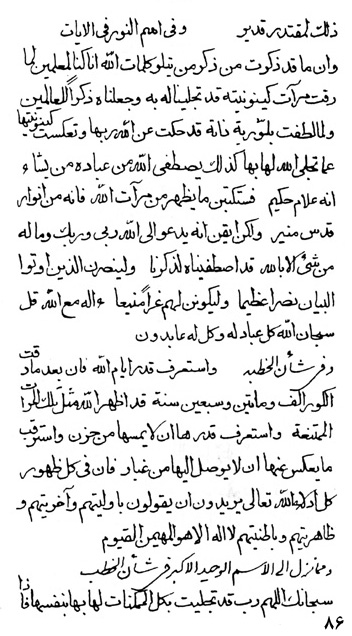 ذلك لمقتدر قدير وفى اسم النور فى الايات
وان ما قد ذكرت من ذكر من يتلو كلمات الله انا كنا لمعلمين لما
رقت مرآت كينونيته قد تجلينا له به وجعلناه ذكرا للعالمين
ولما لطفت بلورية ذاته قد حكت عن الله ربها وتعكست كينونيتها
عما تجلى الله لها بها كذلك يصطفى الله من عباده من يشاء
انه علام حكيم فستكتبن ما يظهر من مرآت الله فانه من انوار
قدس منير ولكن ايقن انه يدعو الى الله ربى وربك وما له
من شئ الا بالله قد اصطفيناه لذكرنا ولينصرن الذين اوتوا
البيان نصرا عظيما وليكونن لهم عزا منيعا ءاله مع الله قل
سبحان الله كل عباد له وكل له عابدون
وفى شأن الخطبه واستعرف قدر ايام الله فان بعد ما دقت
الكور الف ومأتين وسبعين سنة قد اظهر الله مثل تلك المرآت
الممتنعة واستعرف قدرها ان لا يمسها من حزن واسترقب
ما يعكس عنها ان لا يوصل اليها من غبار فان فى كل ظهور
كل ادلاء الله تعالى يريدون ان يقولون باوليتهم وآخريتهم و
ظاهريتهم وباطنيتهم لا اله الا هو المهيمن القيوم
ومما نزل الى الاسم الوحيد الاكبر فى شأن الخطب
سبحانك اللهم رب قد تجليت بكل الممكنات لها بها بنفسها فاذا
٨٦